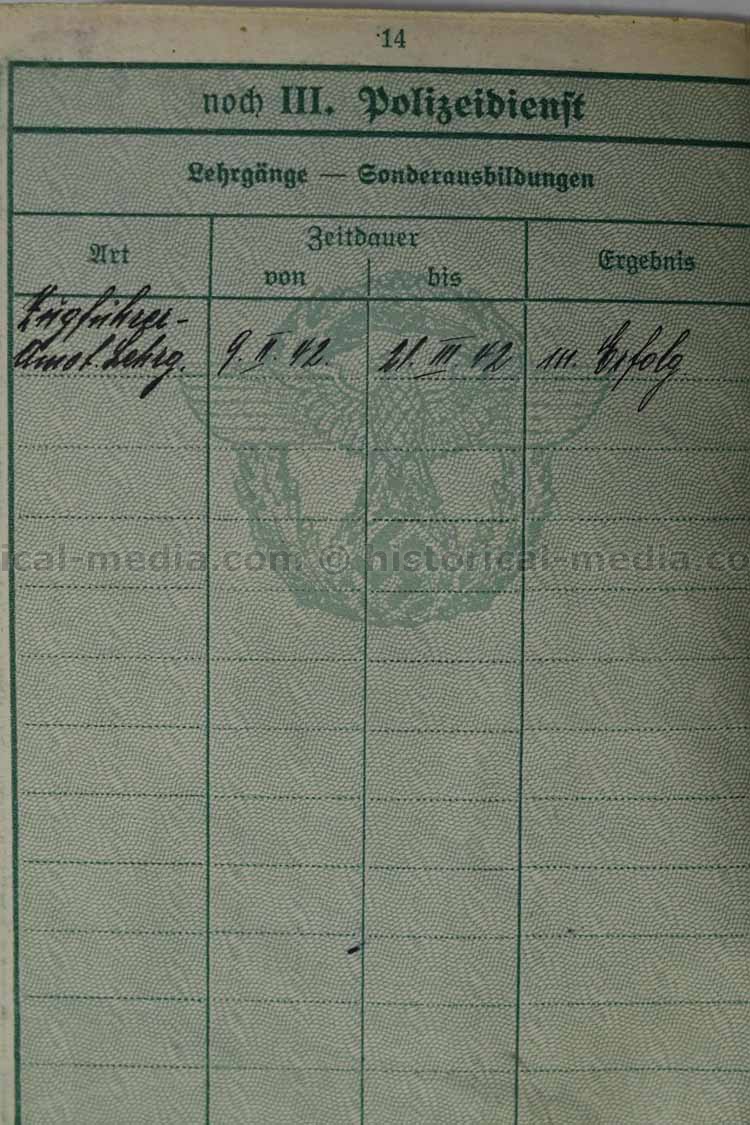 14
noch III. Polizeidienst
Lehrgänge — Sonderausbildungen
Art
Zeitdauer
von
bis
Ergebnis
Zugführer-
Anw. Lehrg. 9. II. 42. 21. III 42 m. Erfolg
ical-media.com © historical-media.co